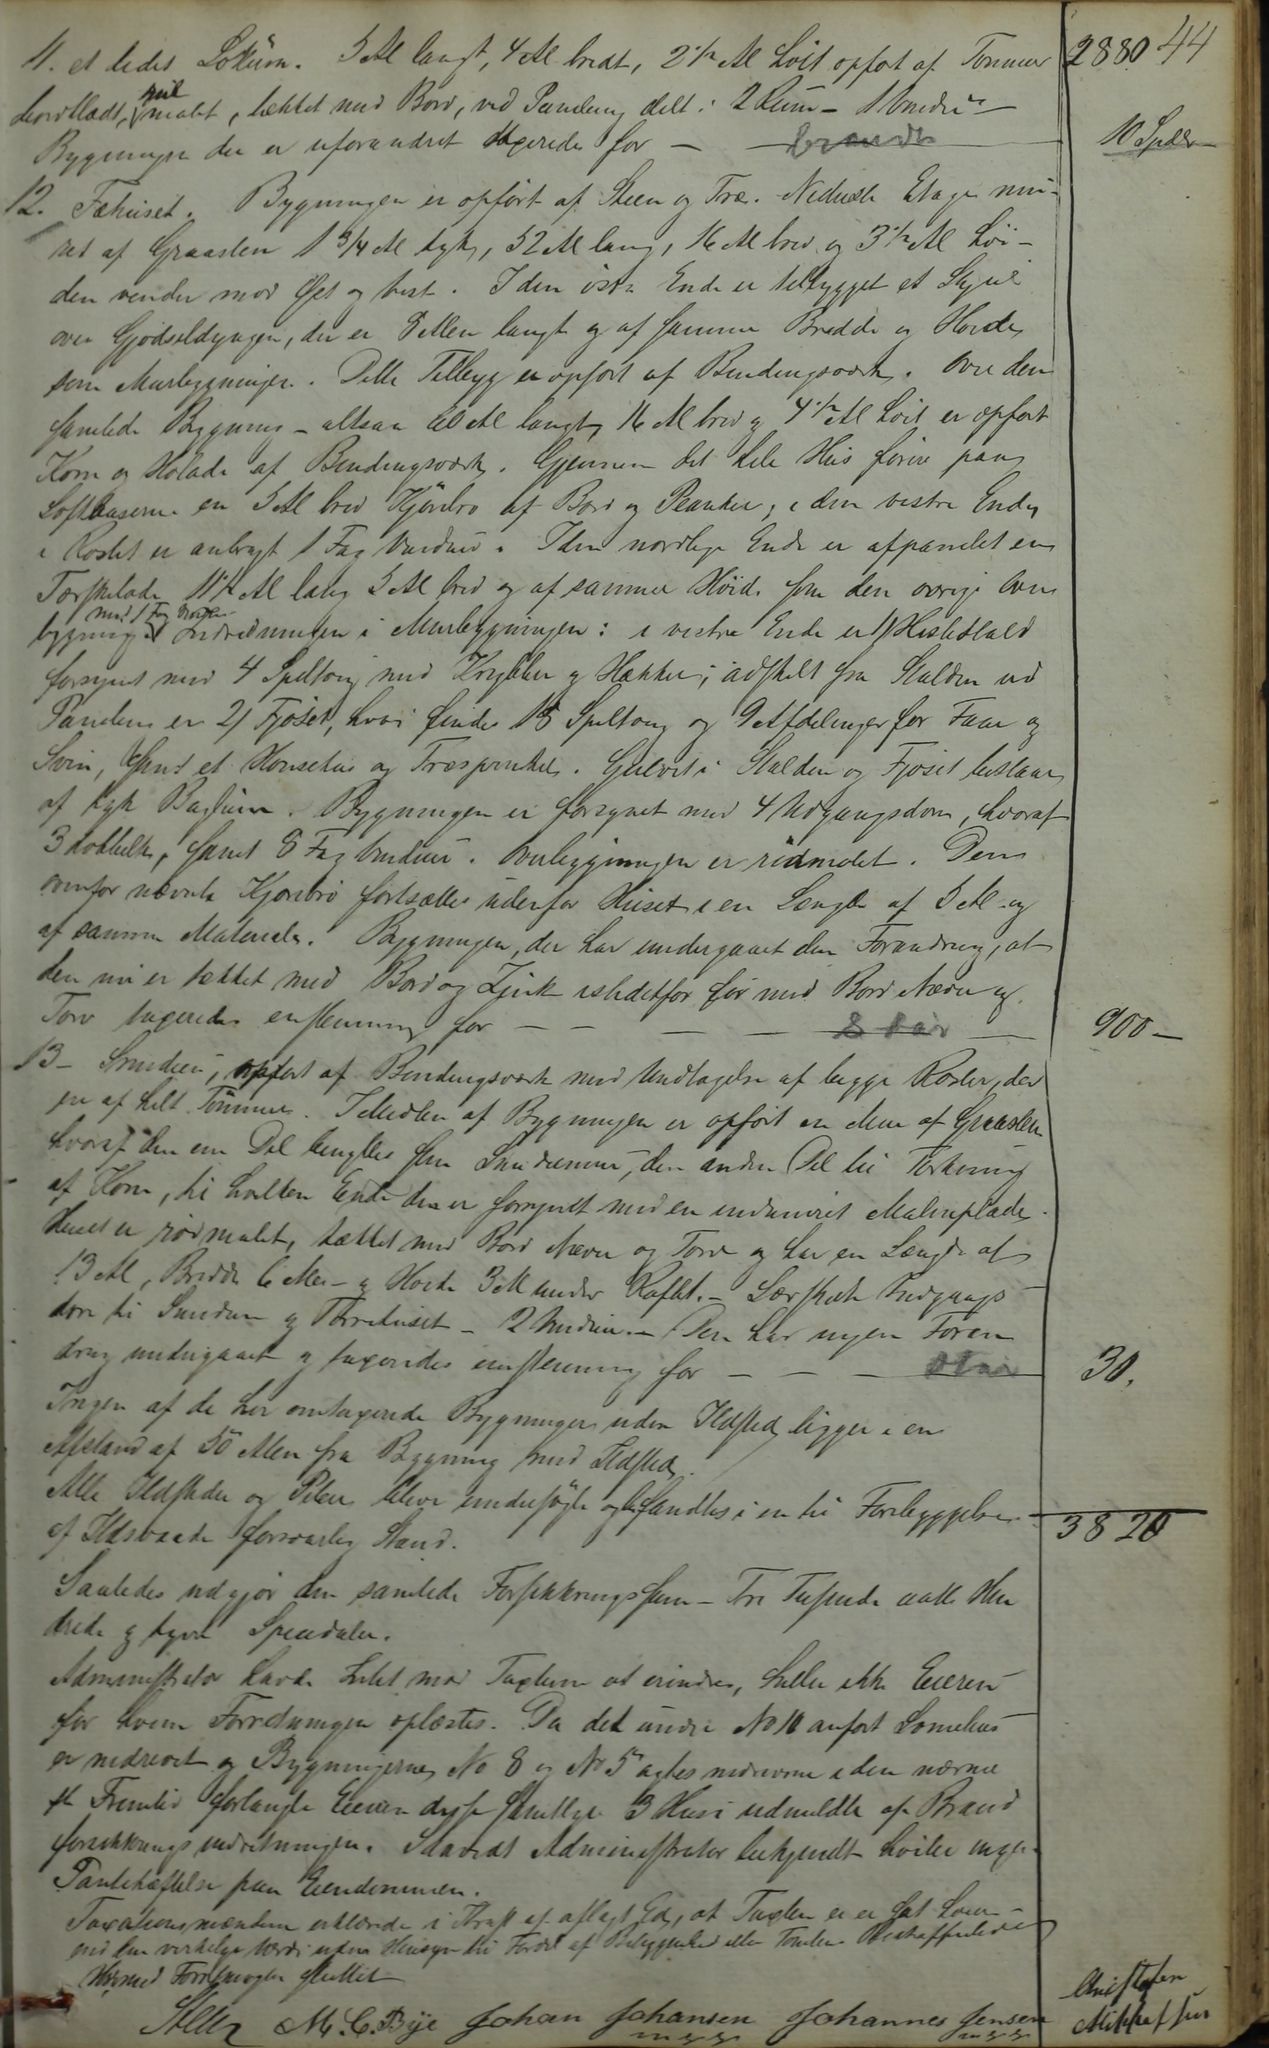 11. et lidet Lokum. 5 Al langt, 4 Al bredt, 2½ Al høit opført af Tømmer 2880. 44
bordklædt, gul malet, tækket med Bord, ved Paneling delt i 2 Rum - 1 Vindu -
Bygningen der er uforandret taxeredes for — brændt 10 Spdlr
12. Fæhuset. Bygningen er opført af Steen og Træ. Nederste Etage mu-
ret af Graasten 1¾ Al tyk, 52 Al lang, 16 Al bred og 3½ Al høi -
den vender mod Øst og Vest. I den østre Ende er tilbygget et Skjul
over Gjødseldyngen, der er 8 Allen langt og af samme Bredde og Høide
som Murbygningen. Dette Tilbyg er opført af Bindingsværk. Over den
samlede Bygning - altsaa 60 Al langt, 16 Al bred og 4½ Al høit er opført
Korn og Hølade af Bindingsværk. Gjennem det hele Hus fører paa
Loftbaserne en 5 Al bred Kjørebro af Bord og Planker, i den vestre Ende
i Røstet er anbragt 1 Fag Vinduer. I den nordlige Ende er afpanelet en
Tærskelade 11½ Al lang 5 Al bred og af samme Høide som den øvrige Over
med 1 Fag Vinduer
bygning. Indredningen i Murbygningen: i vestre Ende er 1/ Hestestald
forsynet med 4 Spiltoug med Krybber og Hækker; adskilt fra Stalden ved
Paneling er 2/ Fjøset, hvori findes 18 Spiltoug og 9 Afdelinger for Faar og
Svin, samt et Hønsehus og Træsprinkel. Gulvet i Stalden og Fjøset bestaar
af tyk Baghun. Bygningen er forsynet med 4 Udgangsdøre, hvoraf
3 dobbelte, samt 8 Fag Vinduer. Overbygningen er rødmalet. Den
ovenfor nævnte Kjørebro fortsættes udenfor Huset i en Længde af 5 Al og
af samme Materiale. Bygningen, der har undergaaet den Forandring, at
den nu er tækket med Bord og Zink istedetfor før med Bord Næver og
Torv taxeredes enstemmig for — — — — 900 —
13 - Smedien, opført af Bindingsværk med Undtagelse af begge Røster, der
er af helt Tømmer. I Midten af Bygningen er opført en Mur af Graasten
hvoraf den ene Del benyttes som Smedemur, den anden Del til Tørkning
af Korn, til hvilken Ende den er forsynet med en indmuret Malmplade.
Huset er rødmalet, tækket med Bord Næver og Torv og har en Længde af
13 Al, Bredde 6 Alen - og Høide 3 Al under Raftet. - Særskilte Indgangs-
døre til Smedien og Tørrehuset - 2 Vinduer. - Den har ingen Foran
dring undergaaet og taxeredes enstemmig for — — — 30.
Ingen af de her omtaxerede Bygninger uden Ildsted ligger i en
Afstand af 50 Alen fra Bygning med Ildsted.
Alle Ildsteder og Piber bleve undersøgte og befandtes i en til Forebyggelse
af Ildsvaade forsvarlig Stand. 3820
Saaledes udgjør den samlede Forsikkringssum - Tre Tusinde aatte Hun
drede og tyve Speciedaler.
Administrator havde Intet mod Taxten at erindre, heller ikke Eieren
for hvem Forretningen oplæstes. Da det under No 10 anført Lomehus
er nedrevet og Bygningerne No 8 og No 5 agtes nedrevne i den nærme
ste Fremtid forlangte Eieren disse samtlige 3 Huse udmeldte af Brand
forsikkringsindretningen. Saavidt Administrator bekjendt hviler ingen
Pantehæftelse paa Eiendommen.
Taxationsmændene erklærede i Kraft af aflagt Ed, at Taxten er sat
end den virkelige Værdi uden Hensyn til Fordel af Beliggenhed eller Tomtens Beskaffenhed
Hermed Forretningen sluttet
M. C. Bye Johan Johansen Johannes Jensen
m. p. p. m. p. p.